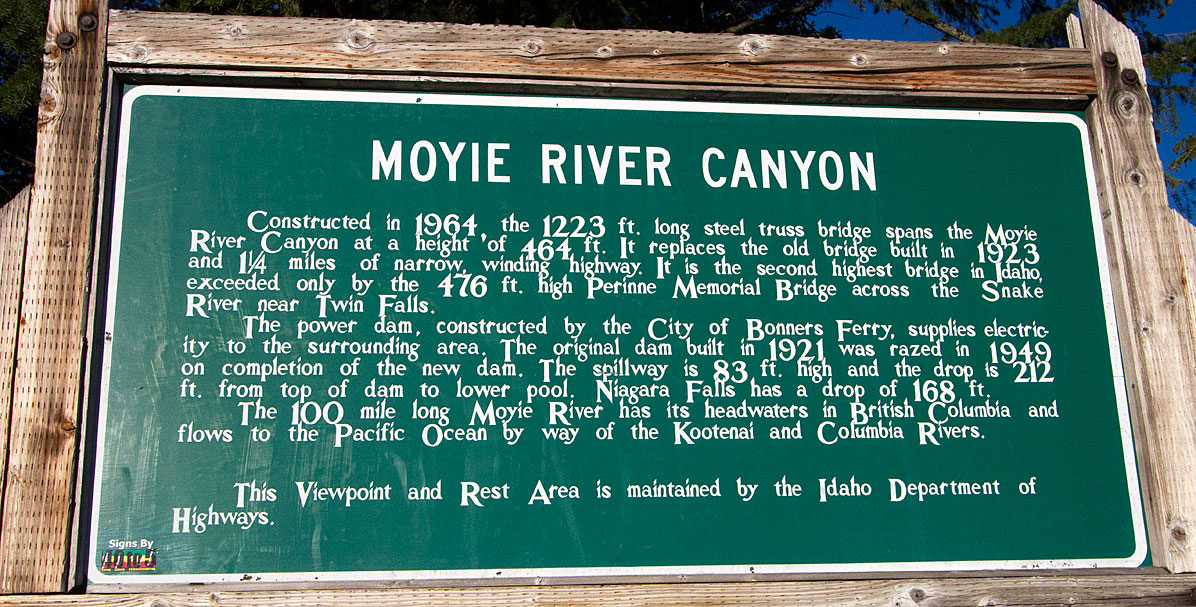 MOYIE RIVER CANYON
Constructed in 1964, the 1223 ft. long steel truss bridge spans the Moyie
River Canyon at a height of 464 ft. It replaces the old bridge built in 1923
and 1¼ miles of narrow, winding highway. It is the second highest bridge in Idaho,
exceeded only by the 476 ft. high Perinne Memorial Bridge across the Snake
River near Twin Falls.
The power dam, constructed by the City of Bonners Ferry, supplies electric-
ity to the surrounding area. The original dam built in 1921 was razed in 1949
on completion of the new dam. The spillway is 83 ft. high and the drop is 212
ft. from top of dam to lower pool. Niagara Falls has a drop of 168 ft.
The 100 mile long Moyie River has its headwaters in British Columbia and
flows to the Pacific Ocean by way of the Kootenai and Columbia Rivers.
This Viewpoint and Rest Area is maintained by the Idaho Department of
Highways.
Signs By